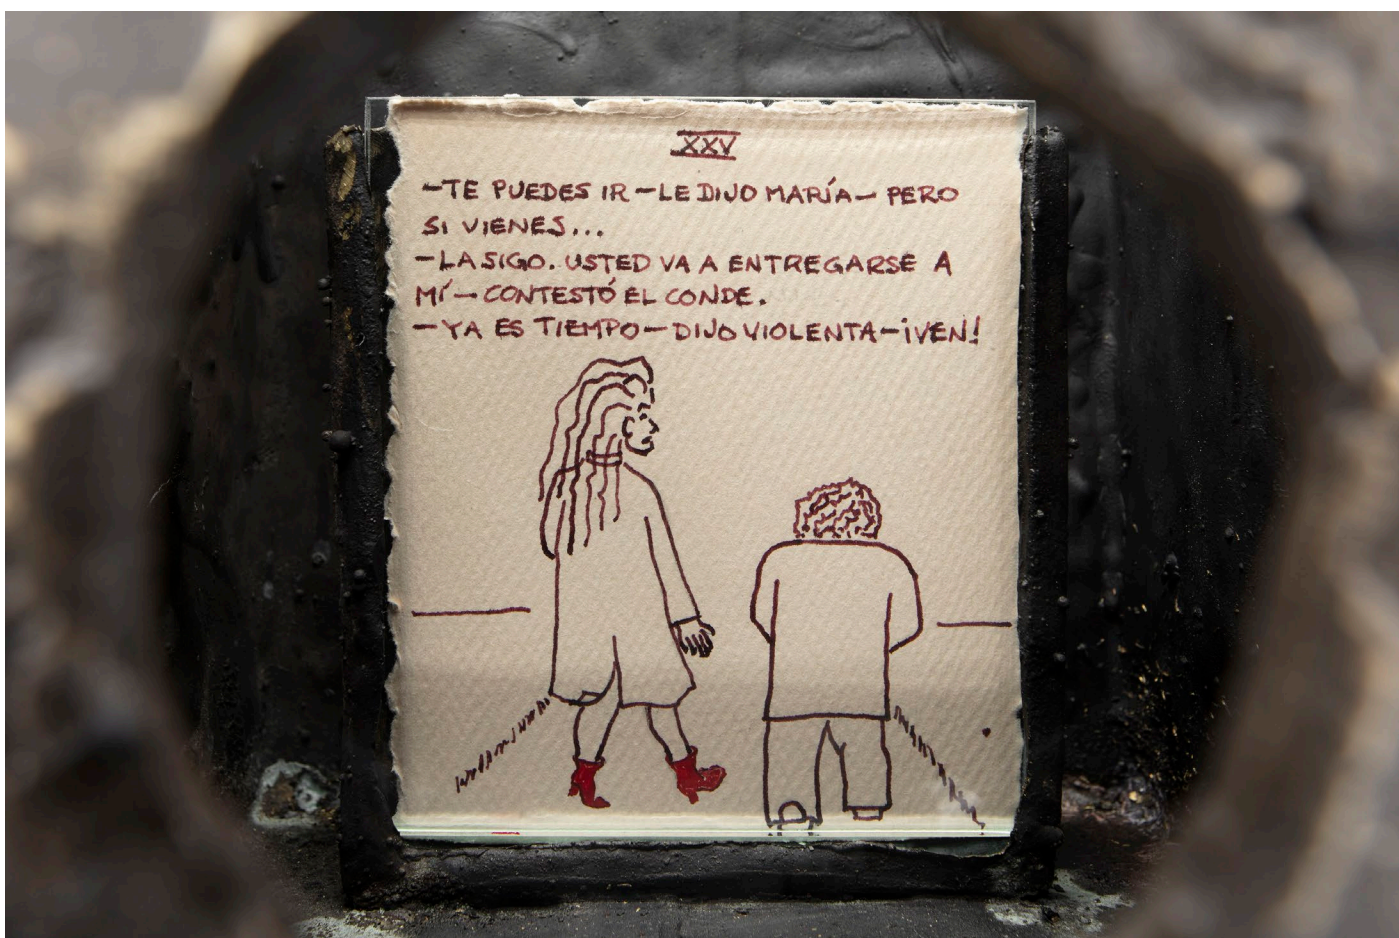 XXV
-TE PUEDES IR-LE DIJO MARÍA-PERO
SI VIENES...
-LA SIGO. USTED VA A ENTREGARSE A
MÍ-CONTESTÓ EL CONDE.
-YA ES TIEMPO-DIJO VIOLENTA-¡VEN!